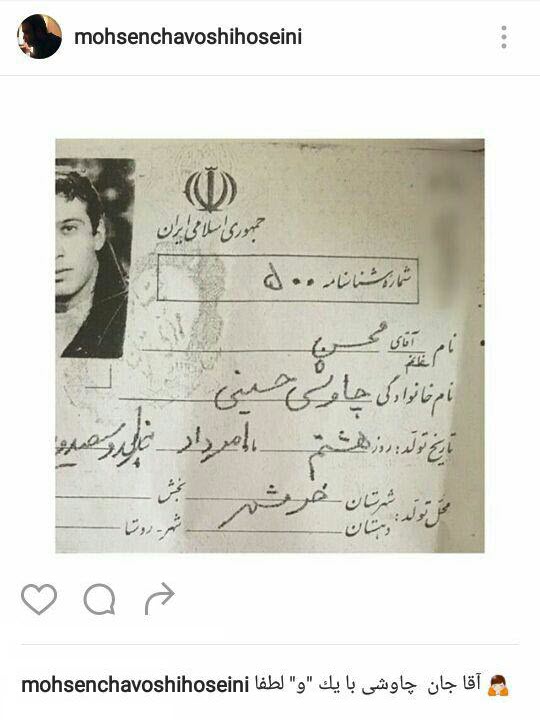 mohsenchavoshihoseini
جمهوری اسلامی ایران
شماره شناسنامه ۵۰۰
نام آقای خانم محسن
نام خانوادگی چاوشی حسینی
تاریخ تولد: روز هشتم ماه مرداد
محل تولد: شهرستان خرمشهر بخش
دهستان شهر - روستا
mohsenchavoshihoseini آقا جان چاوشی با يك "و" لطفا 🙇